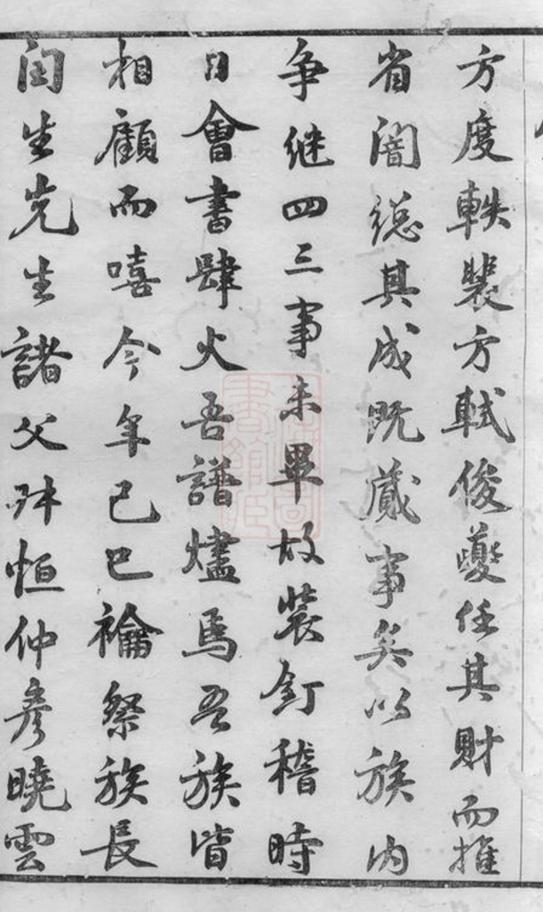 方度軼裴方軾俊夔任其財而推
省闇總其成既蕆事矣以族内
争继四三事未畢故裝釘稽時
日會書肆火吾譜燼焉吾族皆
相顧而嘻今年己巳禴祭族長
闰生先生諸父叔恒仲彦曉雲